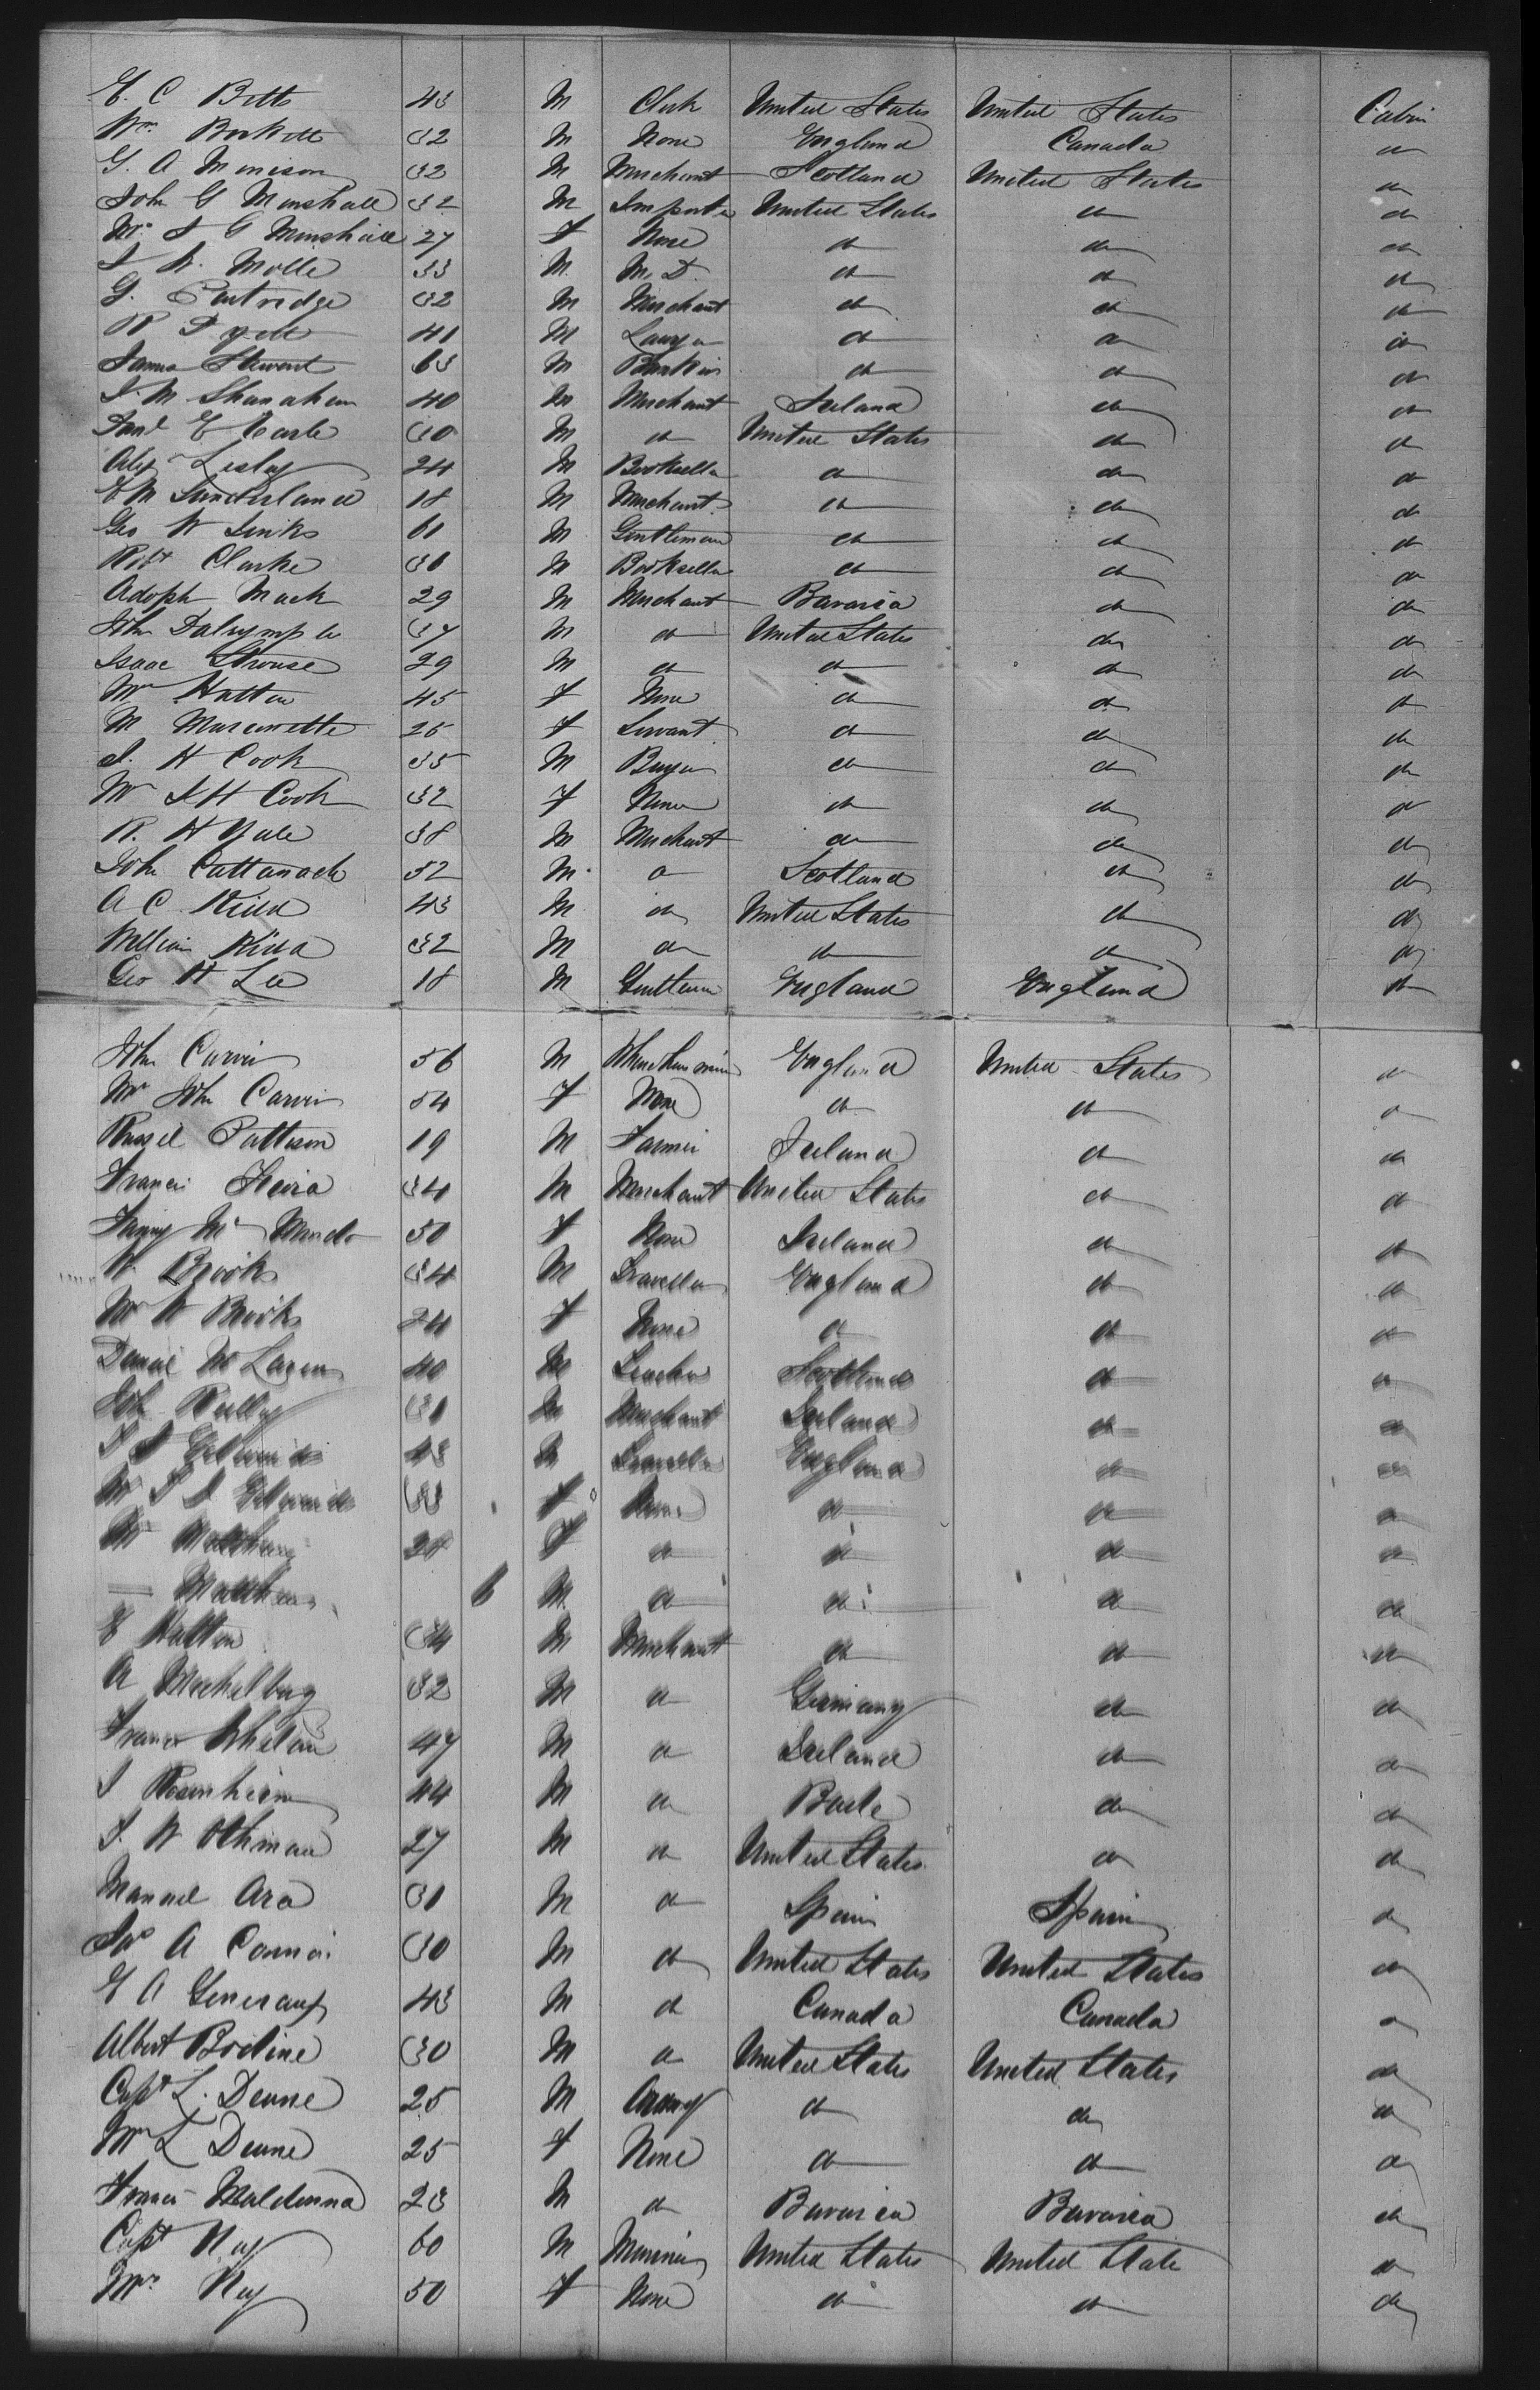 E. C Betts 43 M Clerk United States United States Cabin
Wm 32 M None England Canada do
G. A Morrison 32 M Merchant Scotland United States do
John G Minshall 32 M Importer United States do do
Mrs J G Minshall 27 F None do do do
33 M M.D. do do do
G. Partridge 32 M Merchant do do do
R 41 M Lawyer do do do
James Stewart 63 M do do do
J. M Shanahan 40 M Merchant Ireland do do
Saml E Earle 30 M do United States do do
Alex Lesley 24 M Bookseller do do do
E M Sunderland 18 M Merchant do do do
Geo W Jenks 61 M Gentleman do do do
Robt Clarke 36 M Bookseller do do do
Adolph Mack 29 M Merchant Bavaria do do
John Dalrymple 37 M do United States do do
Isaac Strouse 29 M do do do do
Mrs Hatton 45 F None do do do
M 25 F Servant do do do
J. H Cook 35 M Buyer do do do
Mrs J H Cook 32 F None do do do
R. H Yale 38 M Merchant do do do
John Cattanach 52 M do Scotland do do
A C Kidd 43 M do United States do do
William Kidd 32 M do do do do
Geo H Lee 18 M Gentleman England England do
John Carvin 56 M England United States do
Mrs John Carvin 54 F None do do do
Russel Pattison 19 M Farmer Ireland do do
Francis 34 M Merchant United States do do
Fanny Mc 50 F None Ireland do do
W Brooks 34 M Traveller England do do
Mrs W Brooks 24 F None do do do
Daniel McLaren 40 M Teacher Scotland do do
John Reilly 31 M Merchant Ireland do do
43 M Traveller England do do
Mrs 33 F None do do do
Mrs Matthews F do do do do
— Matthews 6 M do do do do
E Hatton 34 M Merchant do do do
A 32 M do Germany do do
Francis Whelan 47 M do Ireland do do
J Rosenheim 44 M do do do
J. W Othman 27 M do United States do do
Manuel Ara 31 M do Spain Spain do
A 30 M do United States United States do
E A Genereux 43 M do Canada Canada do
Albert Bodine 30 M do United States United States do
Capt L. Deane 25 M Army do do do
Mrs L Deane 25 F None do do do
Francis 23 M do Bavaria Bavaria do
Capt Nay 60 M Mariner United States United State do
Mrs Nay 50 F None do do do